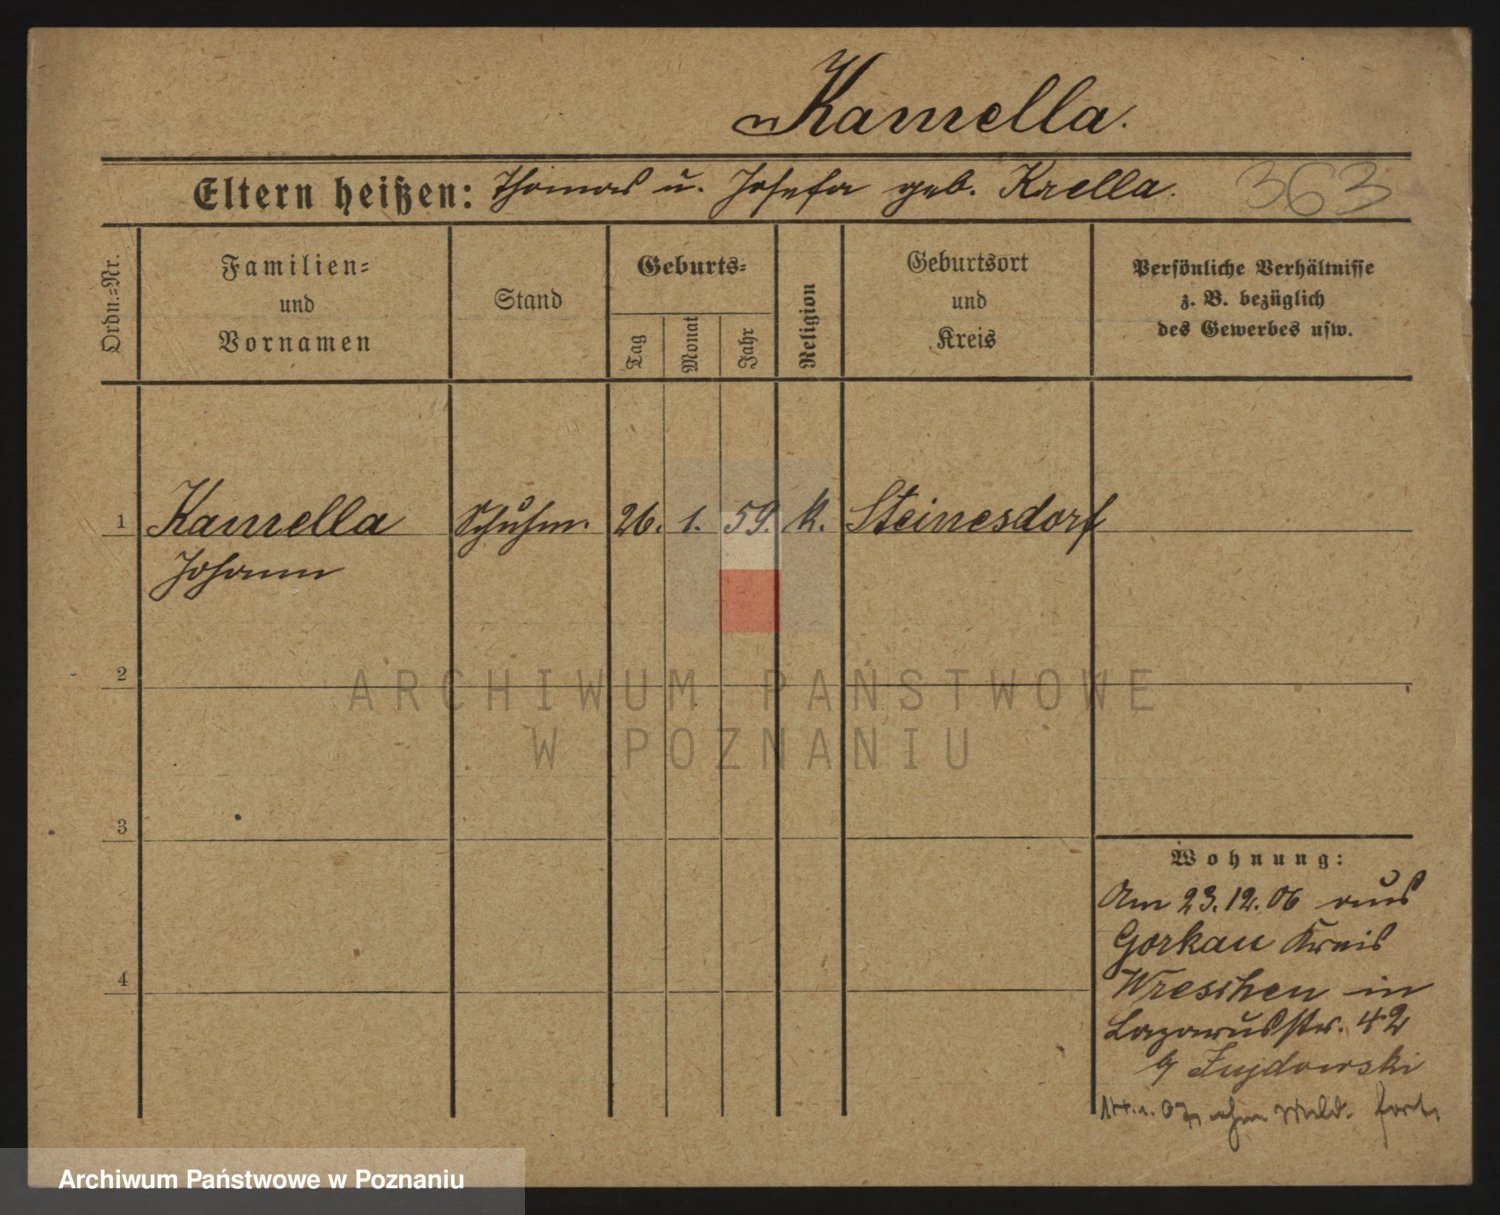 Kamella.
Eltern heißen: Thomas u. Josefa geb. Krella. 363
Ordn.=Nr.
Familien=
und
Vornamen
Stand
Geburts=
Tag
Monat
Jahr
Religion
Geburtsort
und
Kreis
Persönliche Verhältnisse
z. B. bezüglich
des Gewerbes usw.
1 Kamella Schuhm. 26. 1. 59. k. Steinesdorf
Johann
2
ARCHIWUM PAŃSTWOWE
W POZNANIU
3
4
Wohnung:
Am 23.12.06 aus
Gorkau Kreis
Wreschen in
Lazarusstr. 42
b/ Zujdowski
07 ohne Meld. fort.
Archiwum Państwowe w Poznaniu